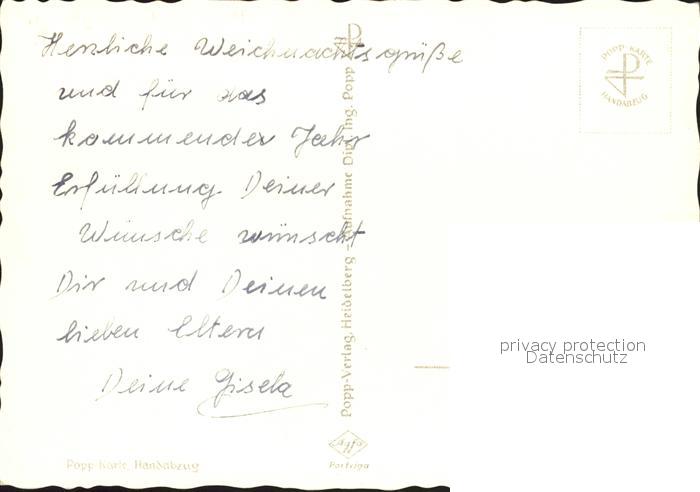 Herzliche Weichnachtsgrüße
und für das
kommender Jahr
Erfüllung Deiner
Wünsche wünscht
Dir und Deinen
lieben Eltern
Deine Gisela
Popp-Karte, Handabzug
Popp-Verlag, Heidelberg - Aufnahme Dipl. Ing. Popp
Agfa
Portriga
POPP-KARTE
HANDABZUG
privacy protection
Datenschutz